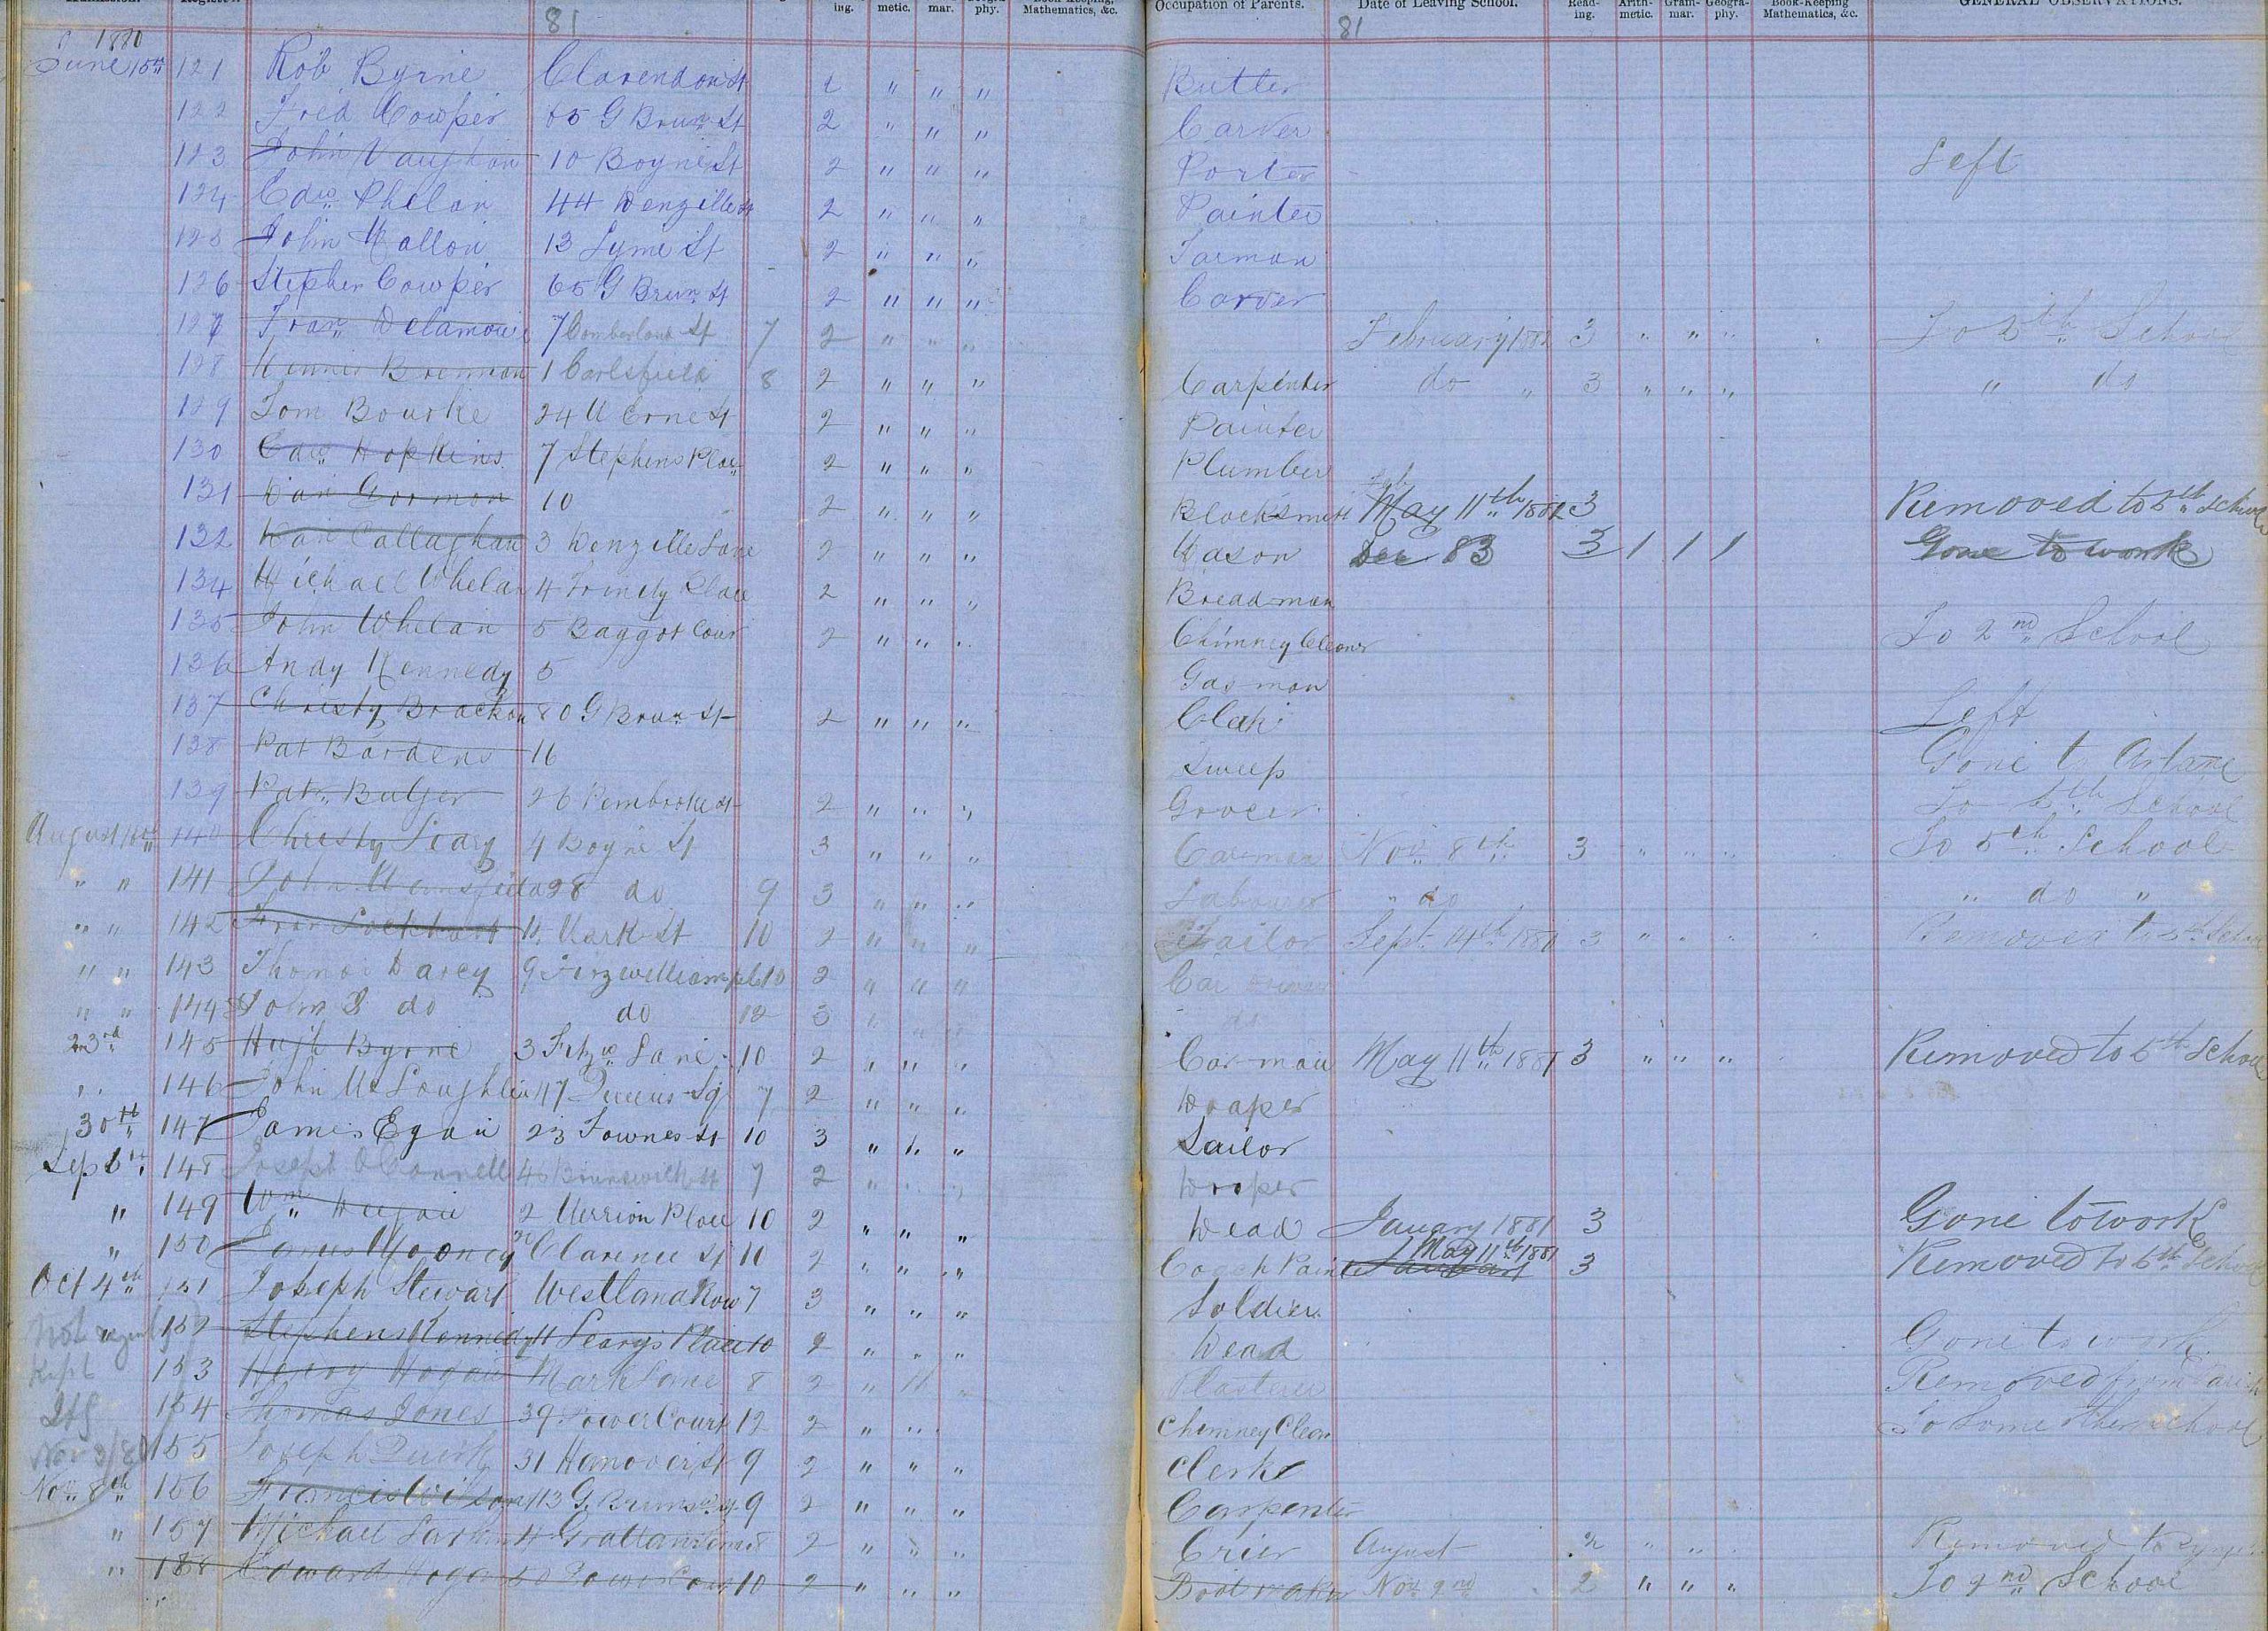 ing. metic. mar. phy. Mathematics, &c. Occupation of Parents. Date of Leaving School. Read-ing. Arith-metic. Gram-mar. Geogra-phy. Book-Keeping Mathematics, &c. GENERAL OBSERVATIONS.
81 81
1880
June 15th 121 Rob Byrne Clarendon St 2 " " " Butler
122 Fred Cowper 65 G Brun. St 2 " " " Carver
123 John Vaughan 10 Boyne St 2 " " " Porter Left
124 Edw Phelan 44 Denzille St 2 " " " Painter
125 John Mallon 13 Lyme St 2 " " " Carman
126 Stephen Cowper 65 G Brun. St 2 " " " Carver
127 Fran 7 Cumberland St 7 2 " " " February 1882 3 " " " To 5th School
128 Dennis Brennan 1 Carlsfield 8 2 " " " Carpenter do " 3 " " " " do
129 Tom Bourke 24 U Erne St 2 " " " Painter
130 Edw Hopkins 7 Stephens Place 2 " " " Plumber
131 Dan Gorman 10 2 " " " Blacksmith May 11th 3 Removed to 5th School
132 Dan Callaghan 3 Denzille Lane 2 " " " Mason Dec 83 3 / / / Gone to work
134 Michael Whelan 4 Trinity Place 2 " " " Breadman
135 John Whelan 5 Baggot Cour 2 " " " Chimney Cleaner To 2nd School
136 Andy Kennedy 5 Gas man
137 Christy Bracken 80 G Brun St 2 " " " Left
138 Pat Bardens 16 Sweep Gone to Artane
139 Patk Bulger 26 Pembroke St 2 " " " Grocer To 5th School
August 16th 140 Christy Leary 4 Boyne St 3 " " " Carman Nov 8th 3 " " " To 5th School
" " 141 John Mansfield 28 do 9 3 " " " Labourer " do " do "
" " 142 Fran Lockhart 11 Mark St 10 2 " " " Tailor Sept 14th 1881 3 " " " Removed to School
" " 143 Thomas Darcy 9 Fitzwilliam pl 10 2 " " " Car
" " 144 John do do 12 3 " " " do
23rd 145 Hugh Byrne 3 Fitzw Lane 10 2 " " " Car man May 11th 1881 3 " " " Removed to 5th School
" 146 John McLoughlin 47 Sq 7 2 " " " Draper
30th 147 James Egan 23 Townes St 10 3 " " " Sailor
Sep 6th 148 Joseph O'Connell 46 Brunswick St 7 2 " " " Draper
" 149 Wm 2 Merrion Place 10 2 " " " Dead January 1881 3 Gone to work
" 150 James Mooney Clarence St 11 2 " " " Coach Painter May 11th 1881 3 Removed to 5th School
Oct 4th 151 Joseph Stewart Westland Row 7 3 " " " Soldier
Not regularly 152 Stephen Kennedy 4 Leary's Place 10 2 " " " Dead Gone to work
Kept 153 Henry Hogan Mark Lane 8 2 " " " Plasterer Removed from Parish
154 Thomas Jones 39 Power Court 12 2 " " " Chimney Clean To some other school
Nov 3/80 155 Joseph Quirk 31 Hanover St 9 2 " " " Clerk
Nov 8th 156 Francis Wilson 113 G. Brunsw 9 2 " " " Carpenter
" 157 Michael Larkin 4 8 2 " " " Crier August 2 " " Removed to
" 158 Edward Hogan Power Court 10 2 " " " Bootmaker Nov 2nd 2 " " " To 2nd School